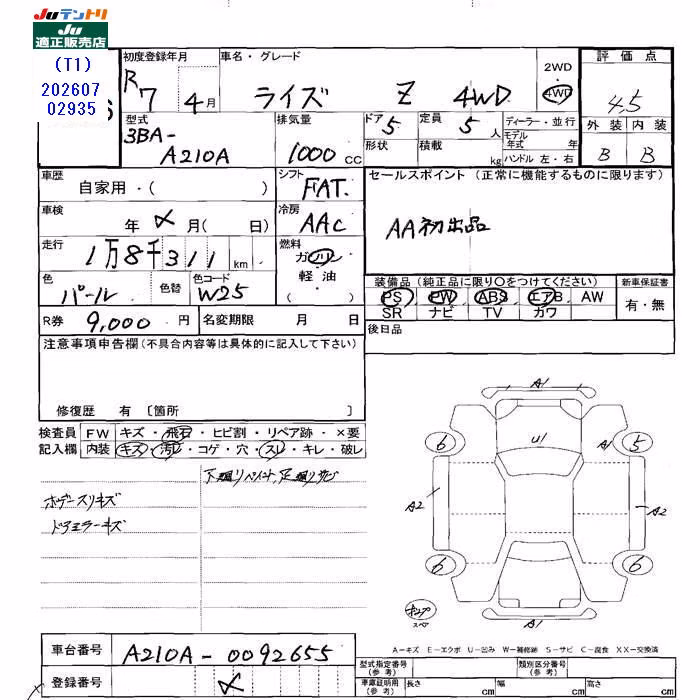 JUテントリ
JU
適正販売店
(T1)
202607
02935
初度登録年月
R7 4月
車名・グレード
ライズ Z 4WD
2WD
4WD
評価点
4.5
外装 内装
B B
型式
3BA-
A210A
排気量
1000 CC
ドア 5
定員 5 人
形状
積載 kg
ディーラー・並行
モデル年式 年
ハンドル 左・右
車歴
自家用・( )
シフト
FAT
セールスポイント (正常に機能するものに限ります)
AA初出品
車検
年 月( 日)
冷房
AAC
走行
1万8千311 km
燃料
ガソリン
軽油
( )
色
パール
色替
色コード
W25
装備品 (純正品に限り〇をつけてください)
PS PW ABS エアB AW
SR ナビ TV カワ
新車保証書
有・無
R券 9,000 円
名変期限 月 日
後日品
注意事項申告欄(不具合内容等は具体的に記入して下さい)
修復歴 有 〔箇所 〕
検査員
記入欄
FW キズ・飛石・ヒビ割・リペア跡・×要
内装 キズ・汚レ・コゲ・穴・スレ・キレ・破レ
ボデースリキズ
ドアミラーキズ
A1
U1
A1
6
5
A2
A2
6
6
A1
スペア
A-キズ E-エクボ U-凹み W-補修跡 S-サビ C-腐食 XX-交換済
車台番号 A210A-0092655
登録番号
型式指定番号
(参考)
類別区分番号
(参考)
車庫証明用
(参考)
長さ cm
幅 cm
高さ cm